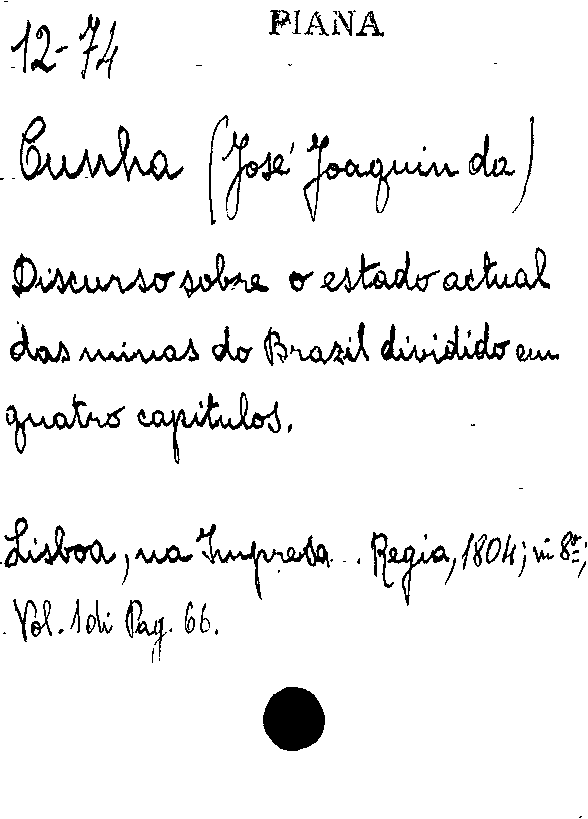 PIANA
12-74
Cunha (José Joaquin da)
Discurso sobre o estado actual
das minas do Brazil dividido em
quatro capitulos.
Lisboa, na Impresa . Regia, 1804; in 8º;
Vol. 1 di Pag. 66.